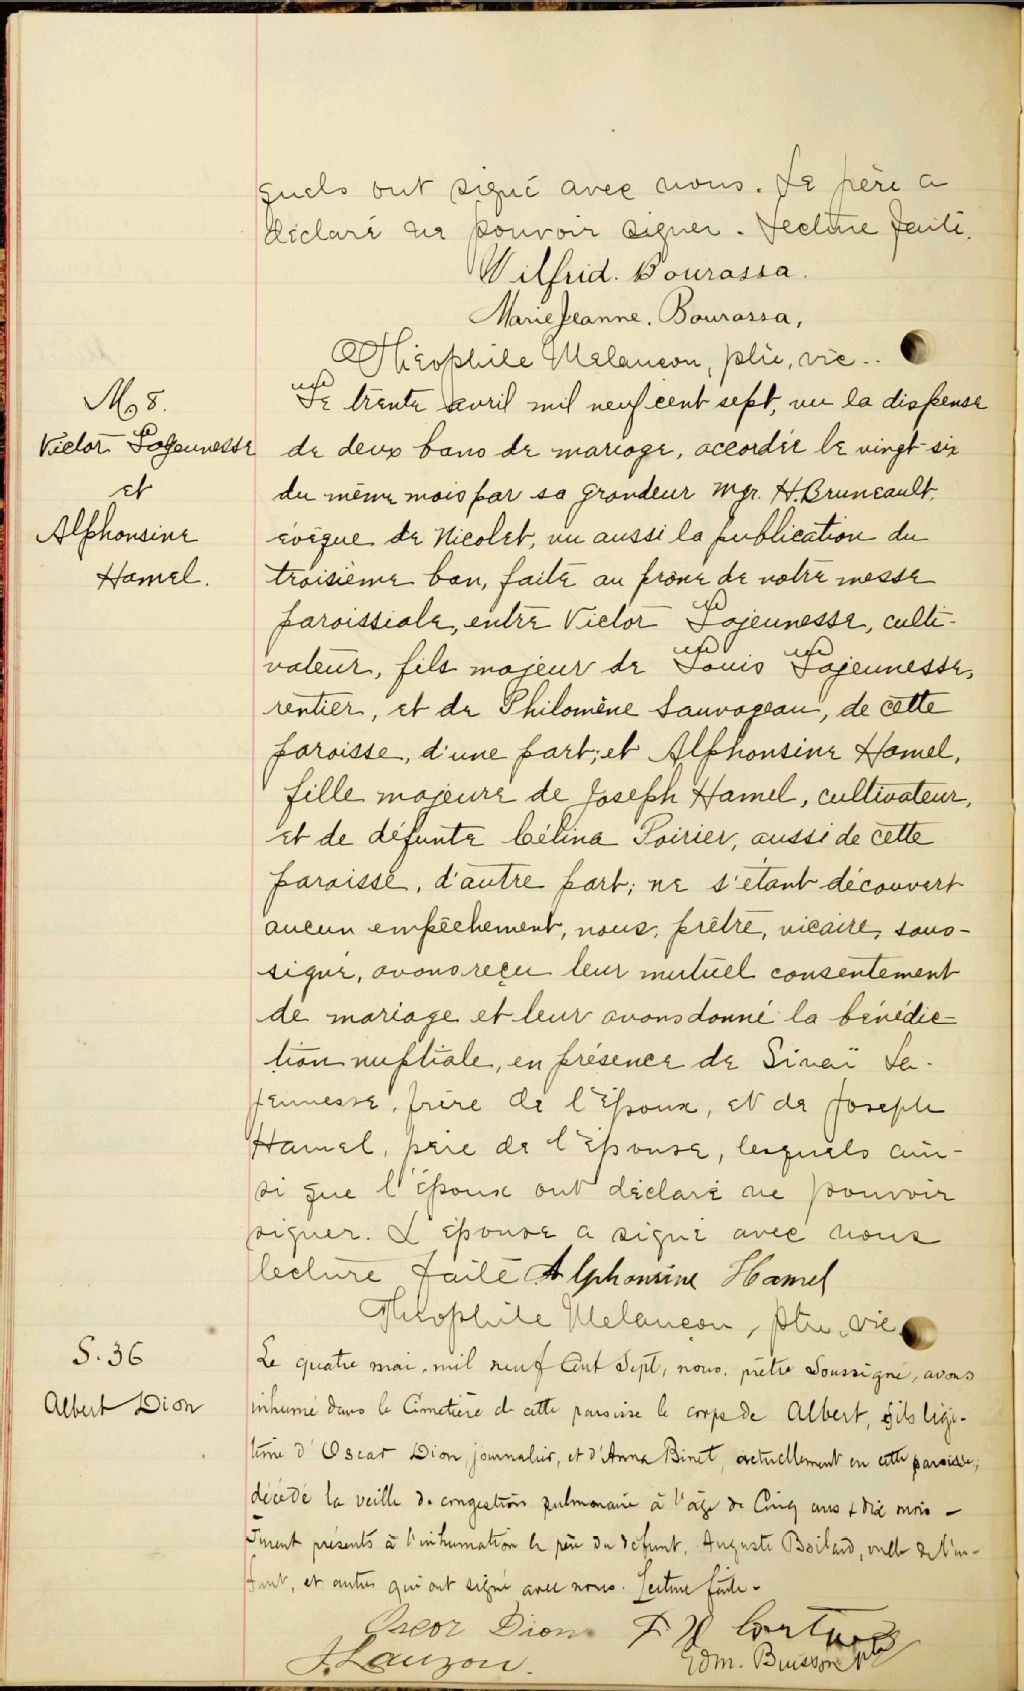 quels ont signé avec nous. Le père a
déclaré ne pouvoir signer. Lecture faite.
Wilfrid. Bourassa.
Marie Jeanne. Bourassa,
Théophile Melançon, ptre, vic..
M, 8.
Victor Lajeunesse
et
Alphonsine
Hamel.
Le trente avril mil neuf cent sept, vu la dispense
de deux bans de mariage, accordée le vingt-six
du même mois par sa grandeur Mgr. H. Bruneault,
évêque de Nicolet, vu aussi la publication du
troisième ban, faite au prône de notre messe
paroissiale, entre Victor Lajeunesse, culti-
vateur, fils majeur de Louis Lajeunesse,
rentier, et de Philomène Sauvageau, de cette
paroisse, d'une part; et Alphonsine Hamel,
fille majeure de Joseph Hamel, cultivateur,
et de défunte Célina Poirier, aussi de cette
paroisse, d'autre part; ne s'étant découvert
aucun empêchement, nous, prêtre, vicaire, sous-
signé, avons reçu leur mutuel consentement
de mariage et leur avons donné la bénédic-
tion nuptiale, en présence de Sinaï La-
jeunesse, frère de l'époux, et de Joseph
Hamel, père de l'épouse, lesquels ain-
si que l'époux ont déclaré ne pouvoir
signer. L'épouse a signé avec nous
lecture faite Alphonsine Hamel
Théophile Melançon, ptre, vic.
S. 36
Albert Dion
Le quatre mai, mil neuf Cent Sept, nous, prêtre Soussigné, avons
inhumé dans le Cimetière de cette paroisse le corps de Albert, fils légi-
time d'Oscar Dion, journalier, et d'Anna Binet, actuellement en cette paroisse,
décédé la veille de congestion pulmonaire à l'âge de Cinq ans & dix mois -
Furent présents à l'inhumation le père du défunt, Auguste Boilard, oncle de l'en-
fant, et autres qui ont signé avec nous. Lecture faite -
Oscar Dion
J. Lauzon.
Edm. Buisson ptre